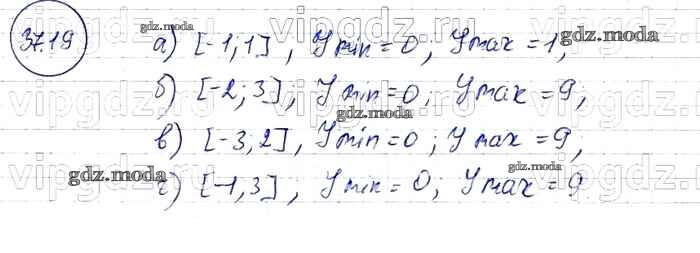 37.19
а) [-1; 1], Y min = 0; Y max = 1,
б) [-2; 3], Y min = 0; Y max = 9,
в) [-3, 2], Y min = 0; Y max = 9;
г) [-1, 3], Y min = 0; Y max = 9
gdz.moda
gdz.moda
gdz.moda
gdz.moda
gdz.moda
gdz.moda
vipgdz
vipgdz
vipgdz